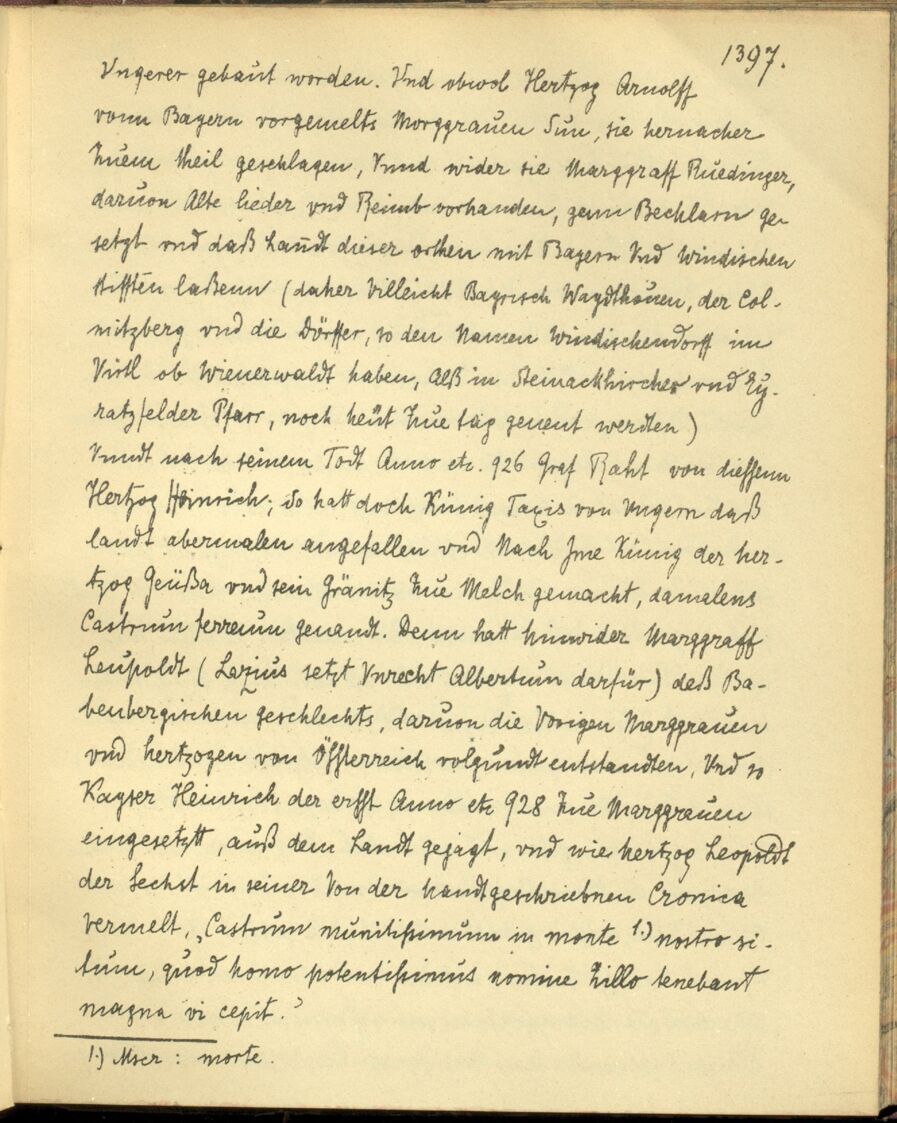 1397.
Vngerer gebaut worden. Vnd obwol Hertzog Arnolff
vonn Bayern vorgemelts Morggrauen Sun, sie hernacher
Zuem theil geschlagen, Vnnd wider sie Marggraff Ruedinger,
daruon Alte lieder vnd Reimb vorhanden, genn Bechlarn ge-
setzt vnd daß Landt dieser orthen mit Bayern Vnd Windischen
stifften laßenn (daher Villeicht Bayrisch Waydthouen, der Col-
mitzberg vnd die Dörffer, so den Namen Windischendorff im
Virtl ob Wienerwaldt haben, Alß in Steinackhircher vnd Eu-
ratzfelder Pfarr, noch heut Zue tag genent werdten)
Vnndt nach seinem Todt Anno etc. 926 Graf Raht von dieffenn
Hertzog Heinrich; So hatt doch Künig Taxis von Vngern daß
landt abermalen angefallen vnd Nach Jme Künig der her-
tzog Geüßa vnd sein Gränitz Zue Melch gemacht, damalens
Castrum ferreum genandt. Denn hatt hinwider Marggraff
Leupoldt (Lazius setzt Vnrecht Albertum darfür) deß Ba-
benbergischen geschlechts, daruon die Vorigen Marggrauen
vnd hertzogen von Öffsterreich volgundt entstandten, Vnd so
Kayser Heinrich der erfft Anno etc 928 Zue Marggrauen
eingesetzt, auß dem Landt gejagt, vnd wie hertzog Leopoldt
der Sechst in seiner Von der handtgeschriebnen Cronica
vermelt, „Castrum munitißimum in monte 1.) nostro si-
tum, quod homo potentißimus nomine Zillo tenebant
magna vi cepit.“
1.) Mscr : morte.